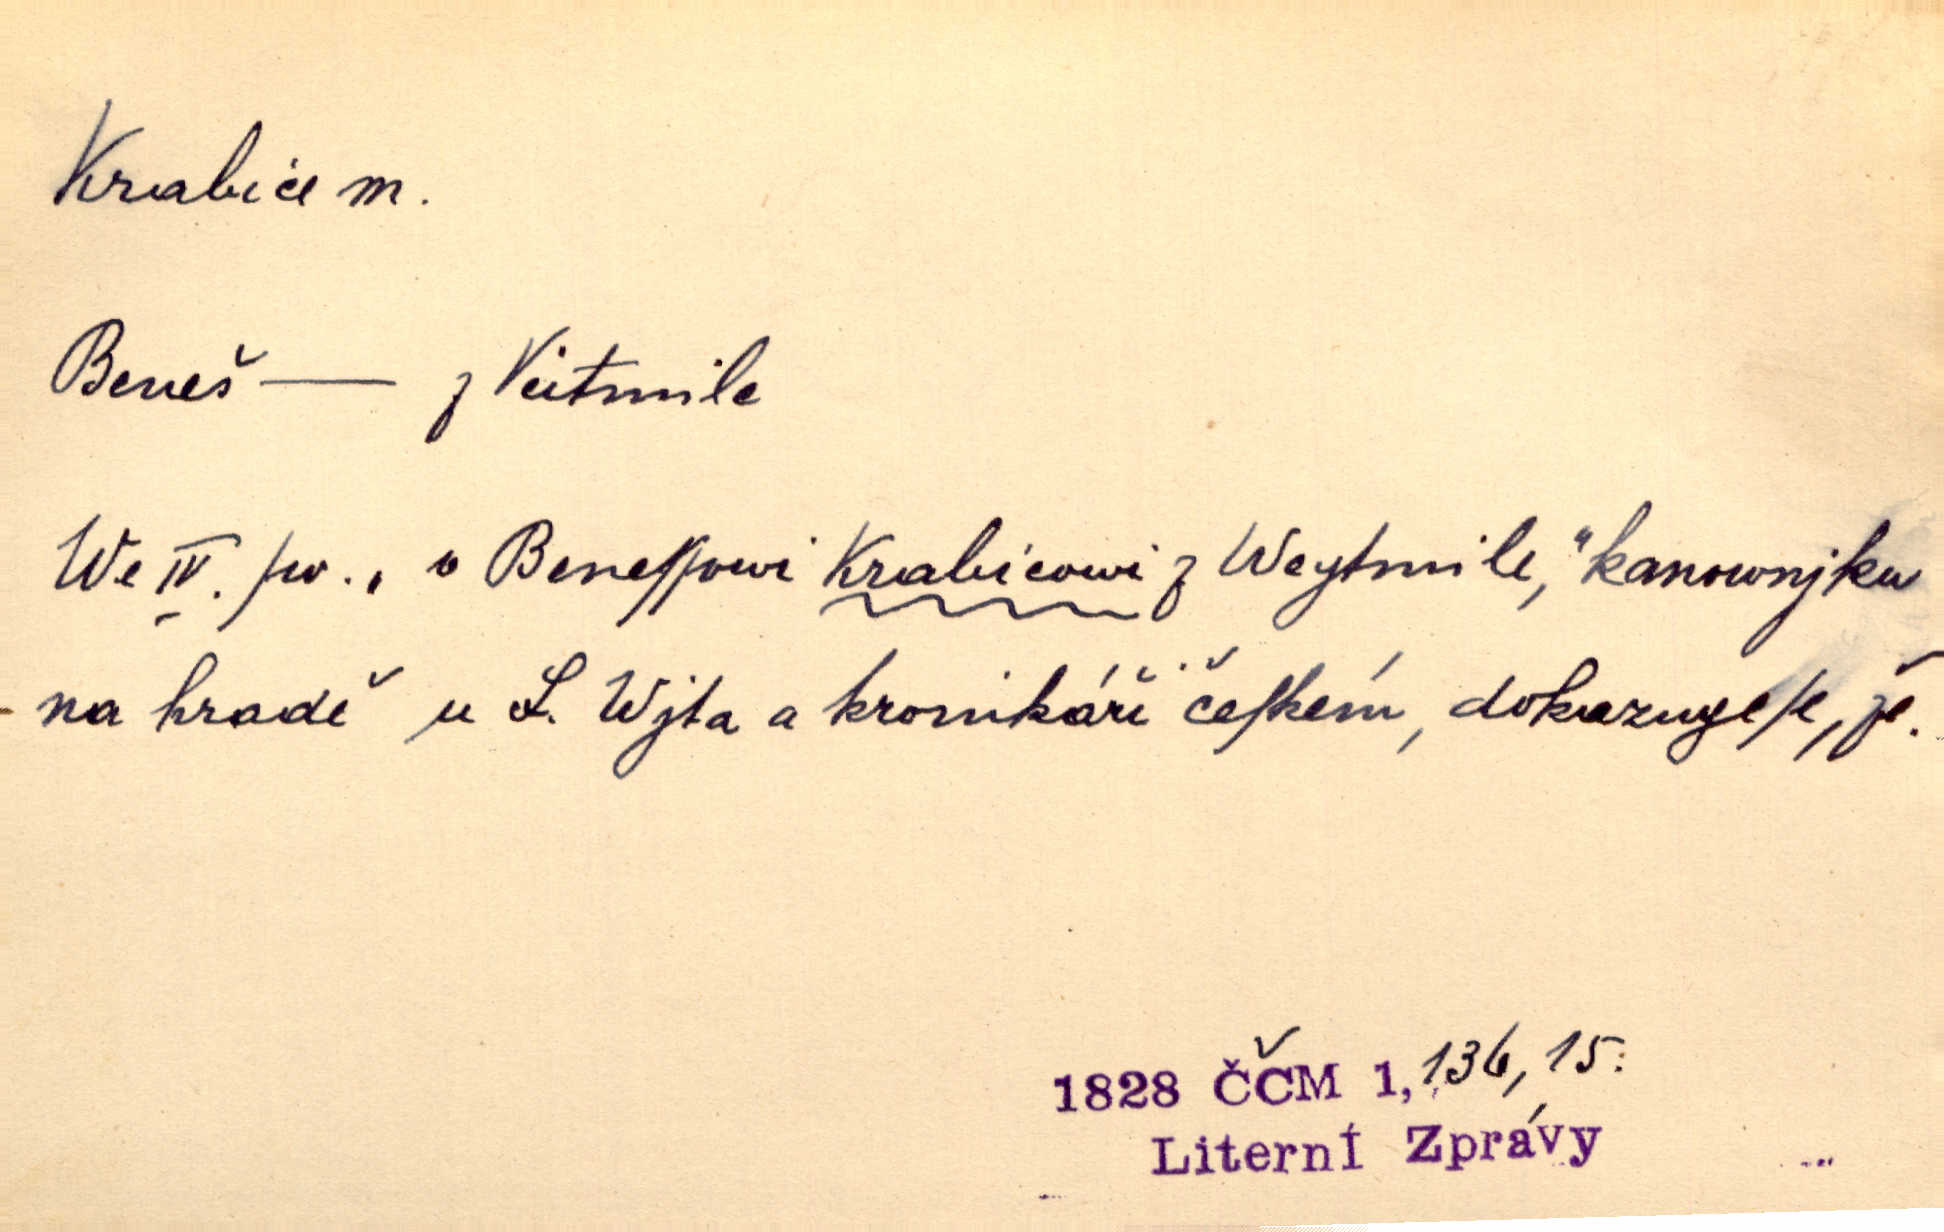 Krabice m.
Beneš — z Veitmile
We IV. sw. „o Benessowi Krabicowi z Weytmile,“ kanownjku
na hradě u S. Wjta a kronikáři českém, dokazuge se, že.
1828 ČČM 1, 136, 15:
Literní Zprávy